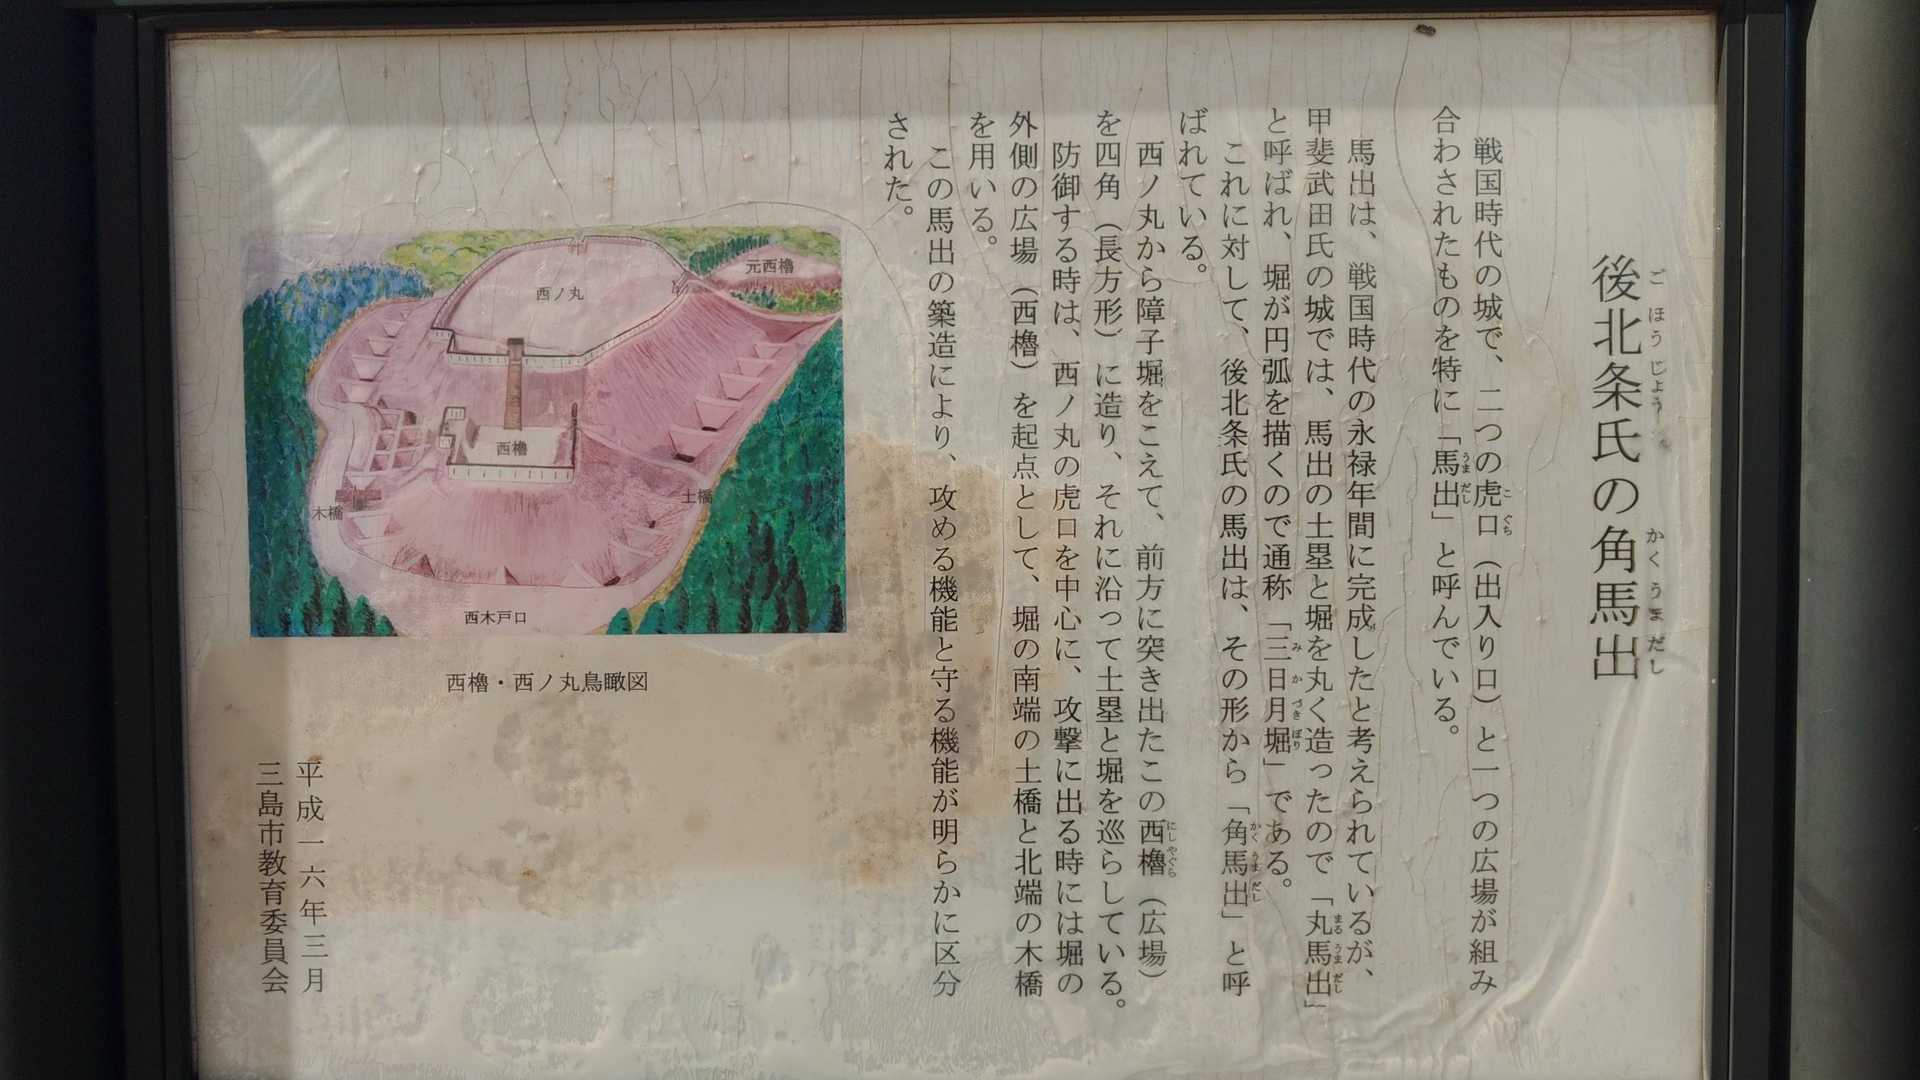 後北条氏の角馬出
ごほうじょう
かくうまだし
戦国時代の城で、二つの虎口（出入り口）と一つの広場が組み
合わされたものを特に「馬出」と呼んでいる。
馬出は、戦国時代の永禄年間に完成したと考えられているが、
甲斐武田氏の城では、馬出の土塁と堀を丸く造ったので「丸馬出」
と呼ばれ、堀が円弧を描くので通称「三日月堀」である。
これに対して、後北条氏の馬出は、その形から「角馬出」と呼
ばれている。
西ノ丸から障子堀をこえて、前方に突き出たこの西櫓（広場）
を四角（長方形）に造り、それに沿って土塁と堀を巡らしている。
防御する時は、西ノ丸の虎口を中心に、攻撃に出る時には堀の
外側の広場（西櫓）を起点として、堀の南端の土橋と北端の木橋
を用いる。
この馬出の築造により、攻める機能と守る機能が明らかに区分
された。
元西櫓
西ノ丸
西櫓
土橋
木橋
西木戸口
西櫓・西ノ丸鳥瞰図
平成一六年三月
三島市教育委員会